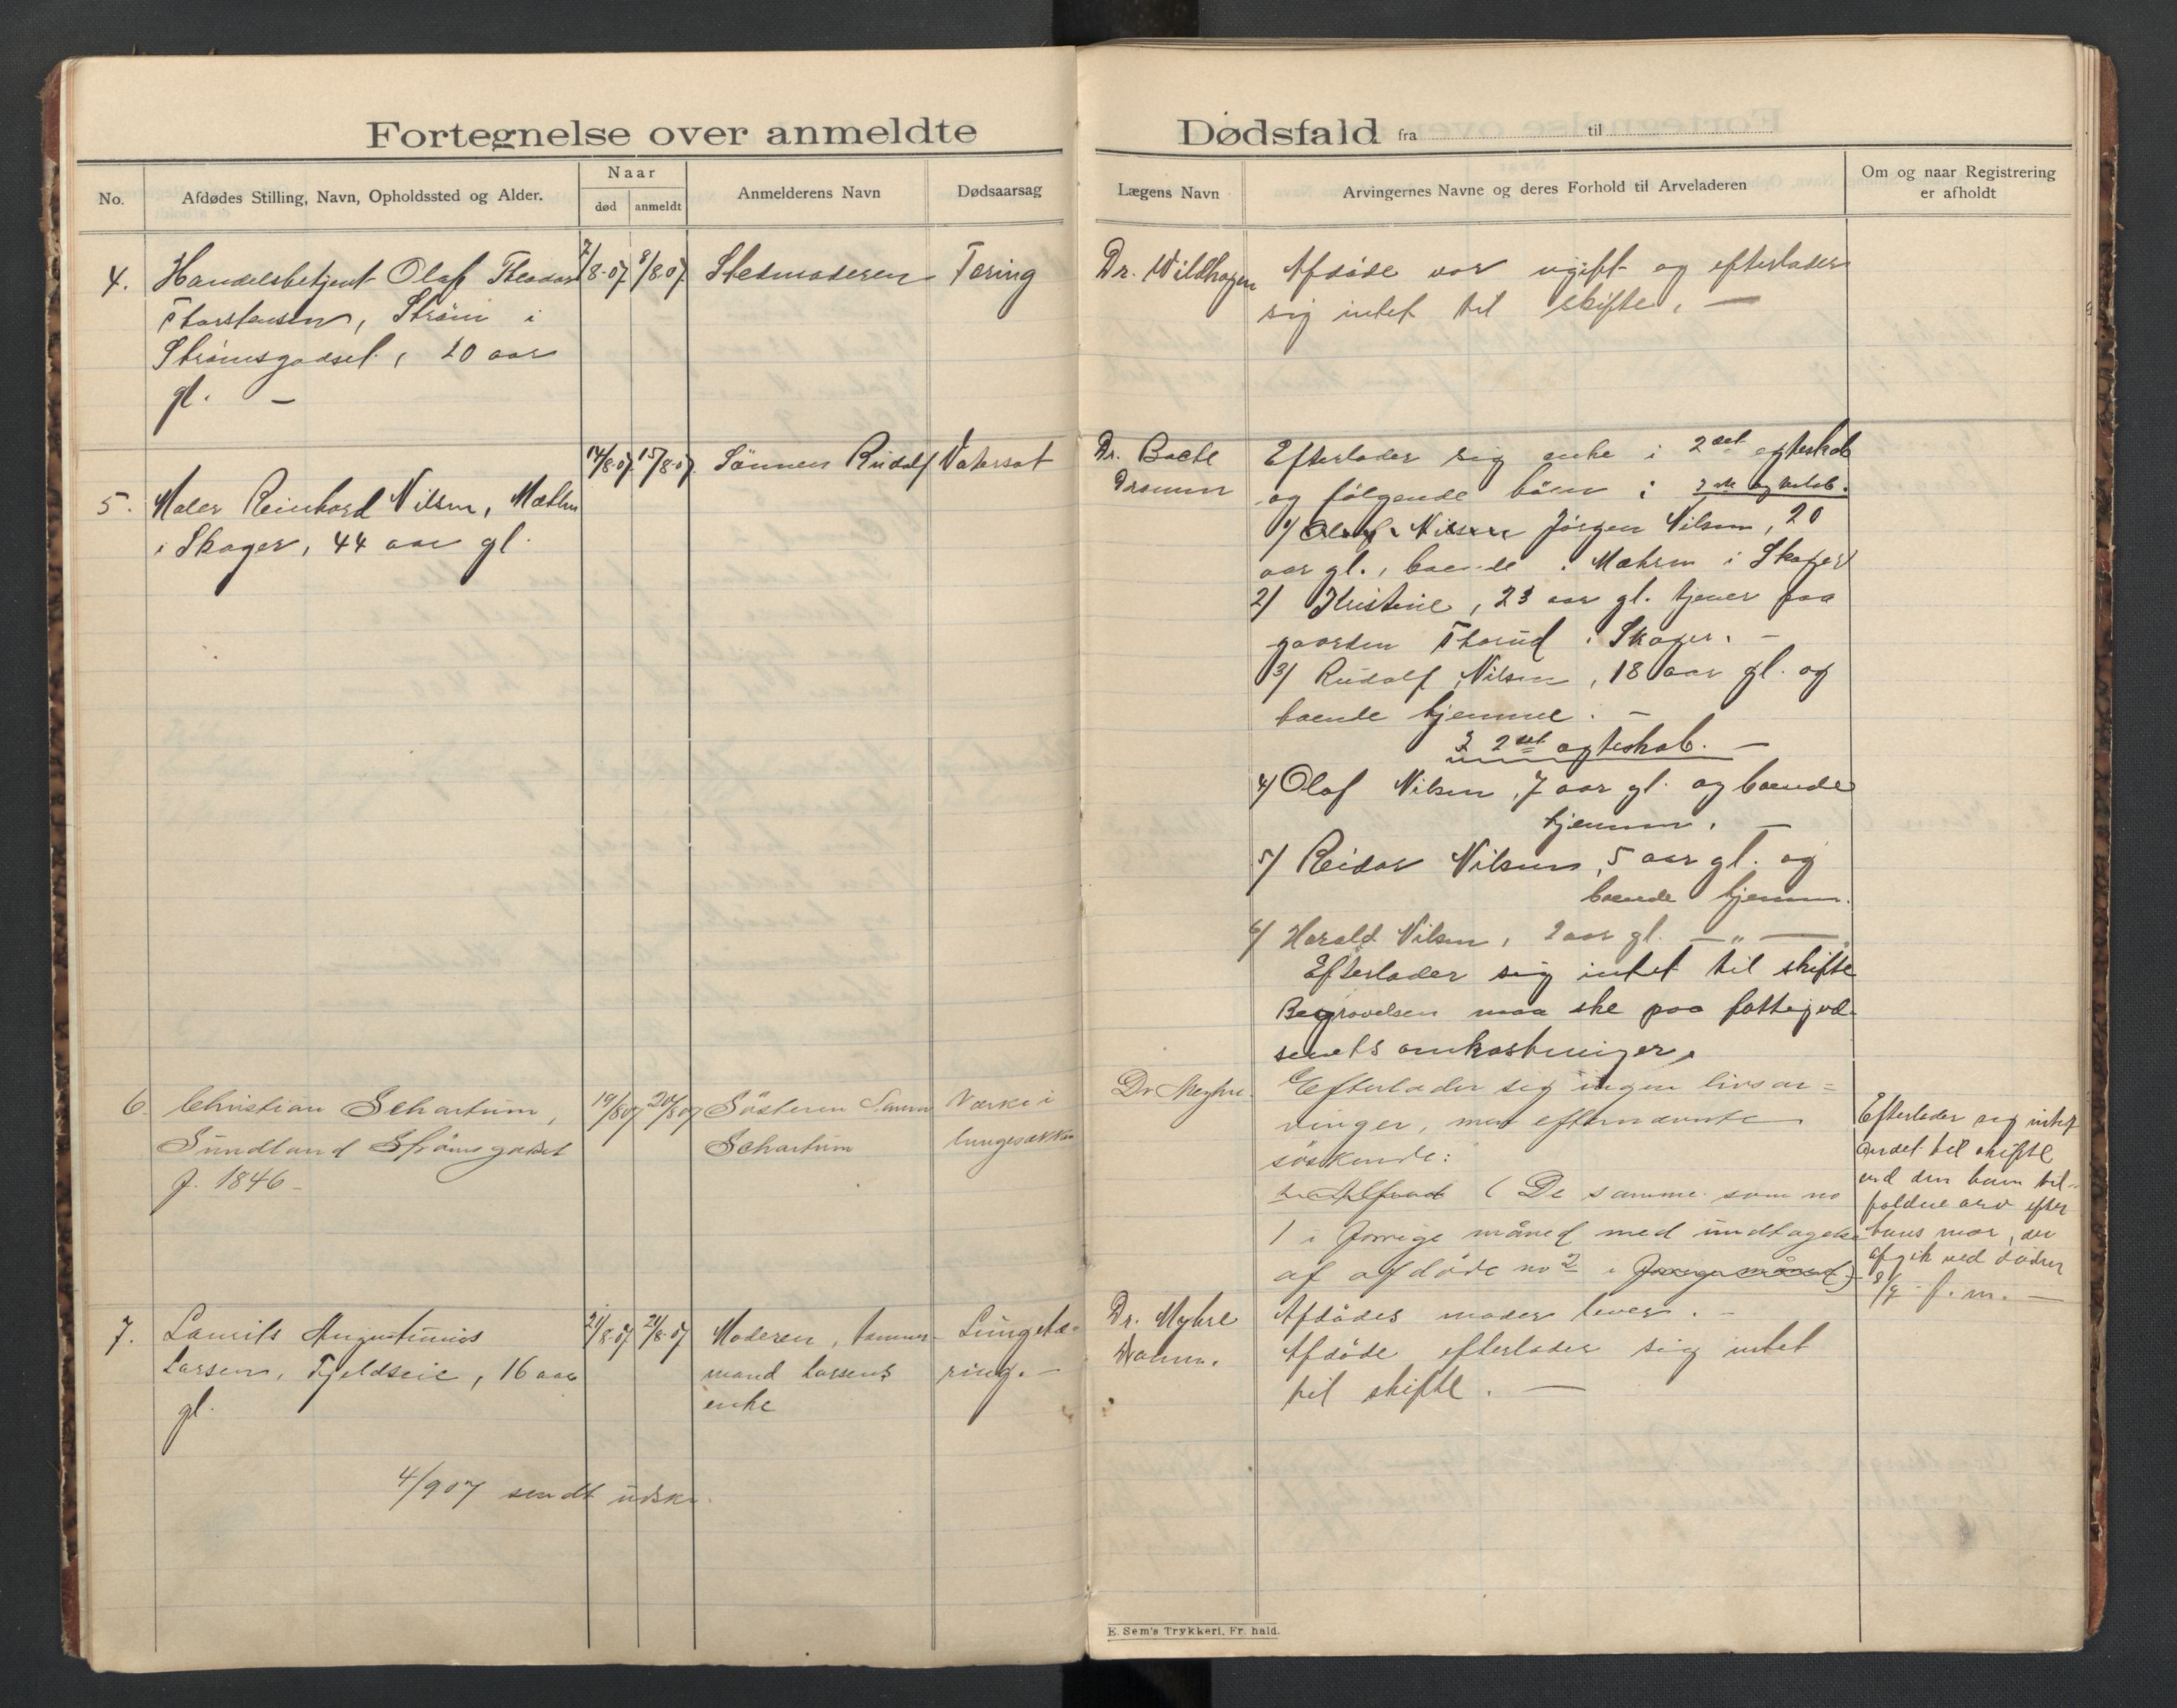 Fortegnelse over anmeldte Dødsfald fra til
No.
Afdødes Stilling, Navn, Opholdssted og Alder.
Naar
død
anmeldt
Anmelderens Navn
Dødsaarsag
Lægens Navn
Arvingernes Navne og deres Forhold til Arveladeren
Om og naar Registrering
er afholdt
4. Handelsbetjent Olaf Theodor
Thorstensen, Strøm i
Strømsgodset, 20 aar
gl. –
7/8-07. 8/8 07.
Stedmoderen
Tæring
Dr. Wildhagen
Afdøde var ugift og efterlader
sig intet til skifte. —
5. Maler Reinhard Nilsen,
i Skoger, 44 aar gl.
14/8-07. 15/8-07.
Sønnen Rudolf
Vatersot
Dr. Bache
Drammen
Efterlader sig enke i 2det egteskab
og følgende børn i 1ste egteskab.
1/ Olaf Nilsen Jørgen Nilsen, 20
aar gl., boende i Mæhren i Skoger
2/ Kristine, 23 aar gl. tjener paa
gaarden Thorud i Skoger. –
3/ Rudolf Nilsen, 18 aar gl. og
boende hjemme. –
I 2det egteskab. –
4/ Olaf Nilsen, 7 aar gl. og boende
hjemme. –
5/ Reidar Nilsen, 5 aar gl. og
boende hjemme.
6/ Harald Nilsen, 2 aar gl. — „ —
Efterlader sig intet til skifte
Begravelsen maa ske paa fattigvæ-
senets omkostninger.
6. Christian Schartum,
Sundland Strømsgodset
f. 1846 –
19/8 07 20/8 07
Søsteren
Schartum
Værk i
lungesækken
Dr Myhre.
Efterlader sig ingen livsar=
vinger, men efternævnte
søskende:
(De samme som no
1 i forrige måned med undtagelse
af afdøde no 2 i forrige måned)
Efterlader sig intet
andet til skifte
end den ham til-
faldne arv efter
hans mor, der
afgik ved døden
8/7 f.m. —
7. Laurits Augustinius
Larsen, Fjeldseie, 16 aar
gl.
21/8-07 21/8-07
Moderen, tømmer-
mand Larsens
enke
Lungetæ-
ring. –
Dr. Myhre
Dramm.
Afdødes moder lever. –
Afdøde efterlader sig intet
til skifte. —
4/9 07 sendt udskr.
E. Sem's Trykkeri, Fr. hald.